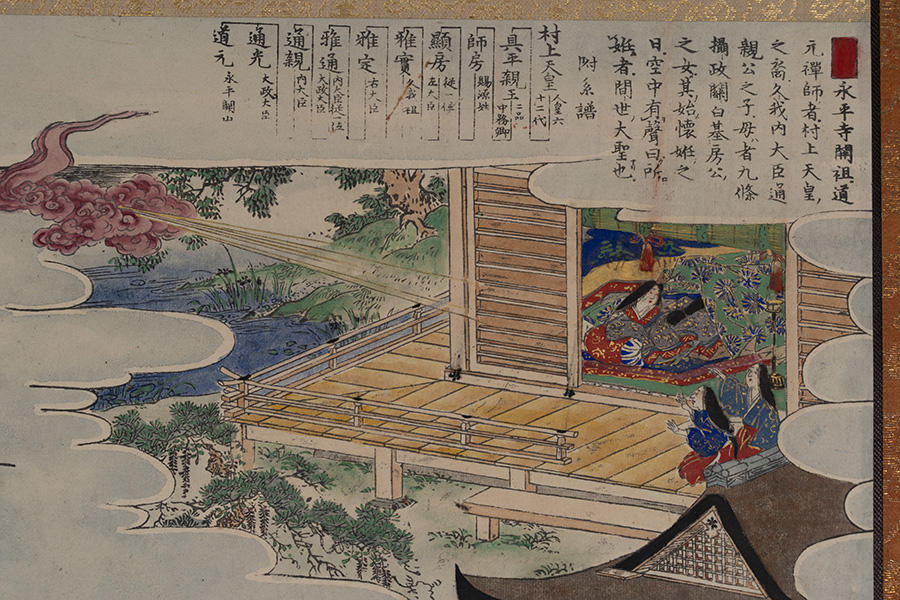 永平寺開祖道
元禪師者村上天皇
之裔久我内大臣通
親公之子母者九條
攝政關白基房公
之女其始懐姙之
日空中有聲曰所
姙者間世大聖也
附系譜
村上天皇 人皇六十三代
具平親王 二品中務卿
師房 賜源姓
顯房 從一位左大臣
雅實 久我祖
雅定 右大臣
雅通 内大臣從一位
通親 内大臣
通光 大政大臣
道元 永平開山